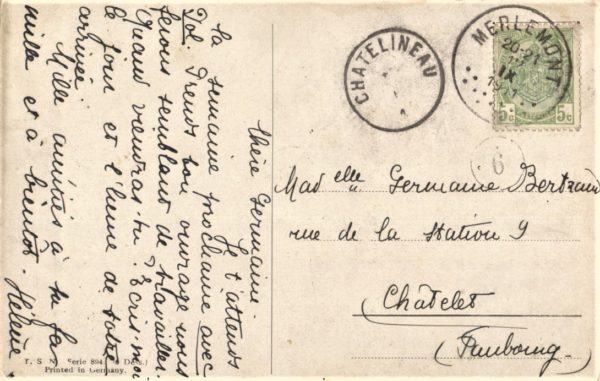 Chère Germaine.
Je t'attends
la semaine prochaine avec
Dol. Prends ton ouvrage nous
ferons semblant de travailler.
Quand viendras-tu. Ecris moi
le jour et l'heure de votre
arrivée.
Mille amitiés à ta fa-
mille et à bientôt. Hélène.
T. S. N. Serie 894 Dess.)
Printed in Germany.
CHATELINEAU
MERLEMONT
20-21
IX
5c 5c
6
Mad elle Germaine Bertrand
rue de la Station 9
Châtelet
(Faubourg)